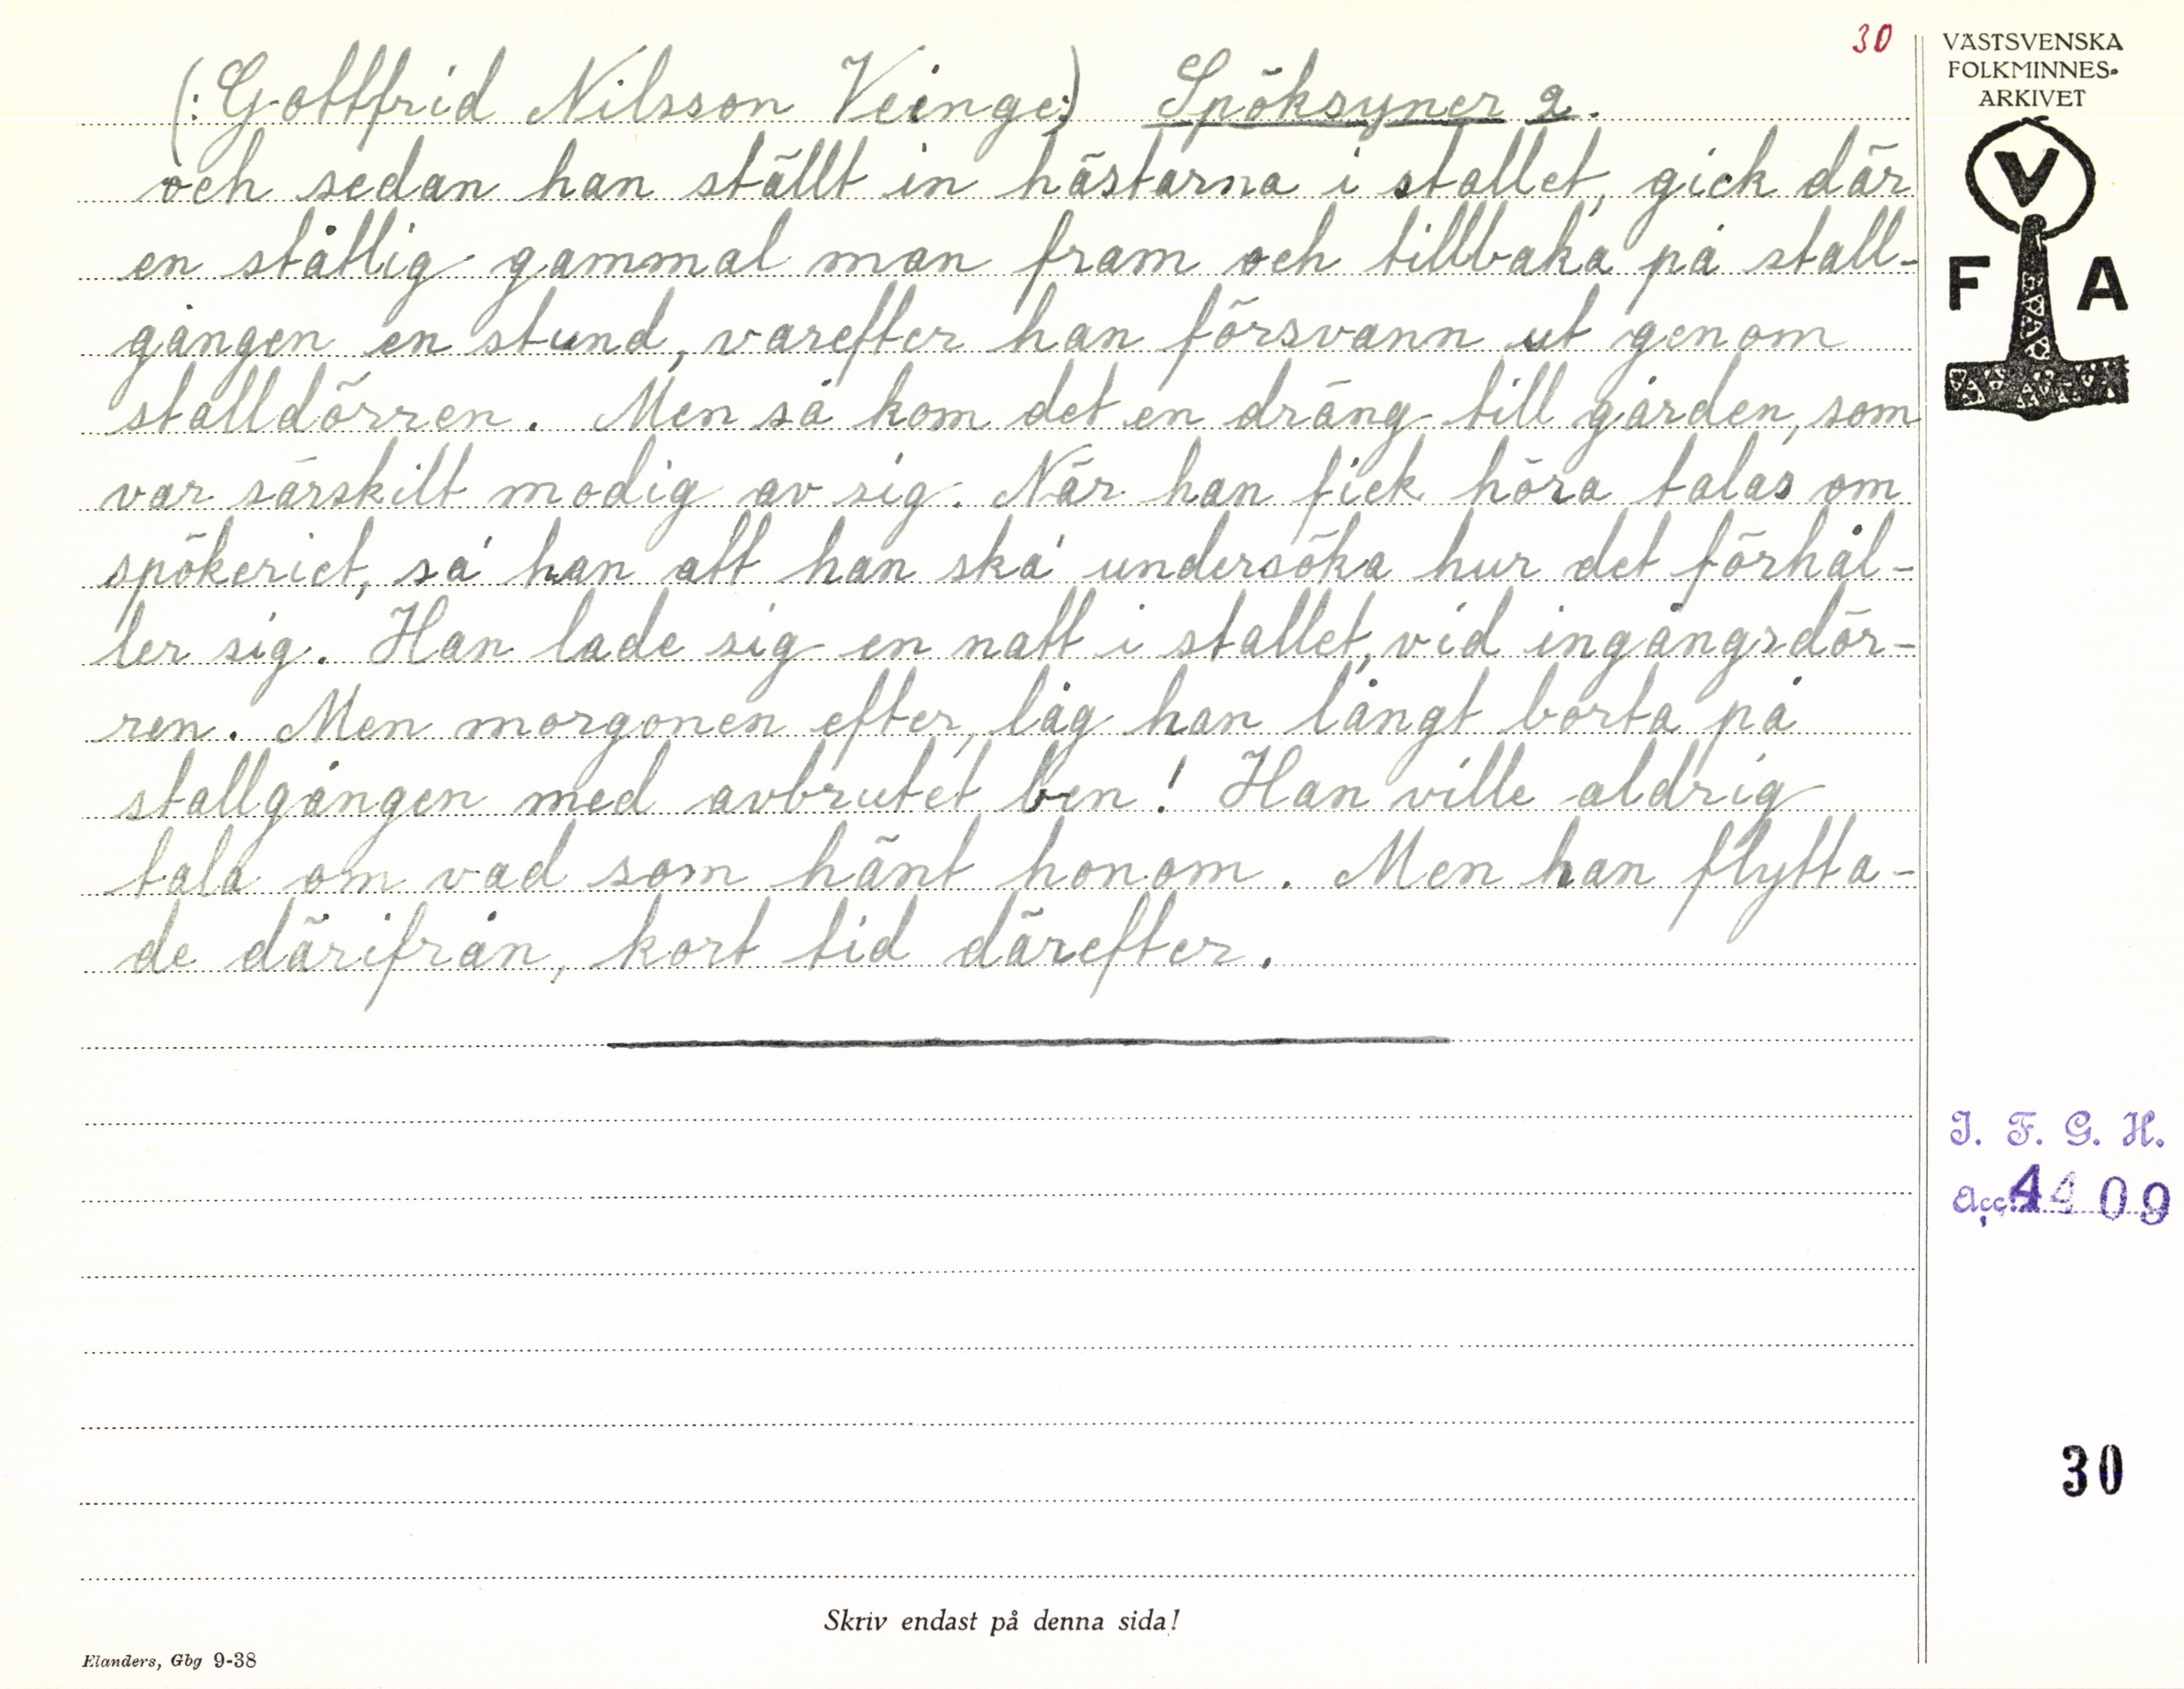 30
(: Gottfrid Nilsson Veinge:) Spöksyner 2.
och sedan han ställt in hästarna i stallet, gick där
en ståtlig gammal man fram och tillbaka på stall-
gången en stund, varefter han försvann ut genom
stalldörren. Men så kom det en dräng till gården, som
var särskilt modig av sig. När han fick höra talas om
spökeriet, sa' han att han ska' undersöka hur det förhål-
ler sig. Han lade sig en natt i stallet, vid ingångsdör-
ren. Men morgonen efter, låg han långt borta på
stallgången med avbrutet ben! Han ville aldrig
tala om vad som hänt honom. Men han flytta-
de därifrån, kort tid därefter.
Skriv endast på denna sida!
Elanders, Gbg 9-38
VÄSTSVENSKA
FOLKMINNES-
ARKIVET
V
F A
I. F. G. H.
Acc. 4409
30